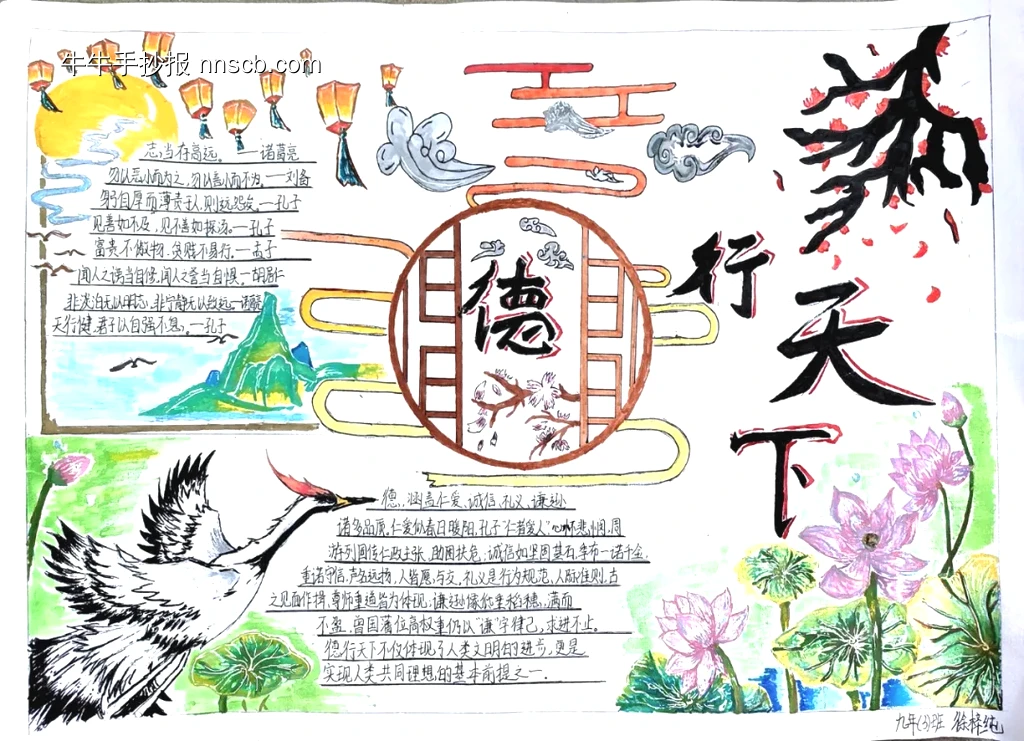 牛牛手抄报 nnscb.com
志当存高远。——诸葛亮
勿以恶小而为之,勿以善小而不为。—刘备
躬自厚而薄责于人,则远怨矣。—孔子
见善如不及,见不善如探汤。—孔子
富贵不傲物,贫贱不易行。—孟子
闻人之谤当自修,闻人之誉当自惧。—胡居仁
非淡泊无以明志,非宁静无以致远。
天行健,君子以自强不息。—孔子
德
行
天
下
德,涵盖仁爱、诚信、礼义、谦逊
诸多品质。仁爱似春日暖阳,孔子“仁者爱人”心怀悲悯,周
游列国传仁政主张,助困扶危。诚信如坚固基石,季布一诺千金,
重诺守信,声名远扬,人皆愿与交。礼义是行为规范,人际准则,古
之见面作揖、尊师重道皆为体现;谦逊像低垂稻穗,满而
不盈,曾国藩位高权重仍以“谦”字律己,求进不止。
德行天下不仅体现了人类文明的进步,更是
实现人类共同理想的基本前提之一.
九年(3)班 徐梓纯